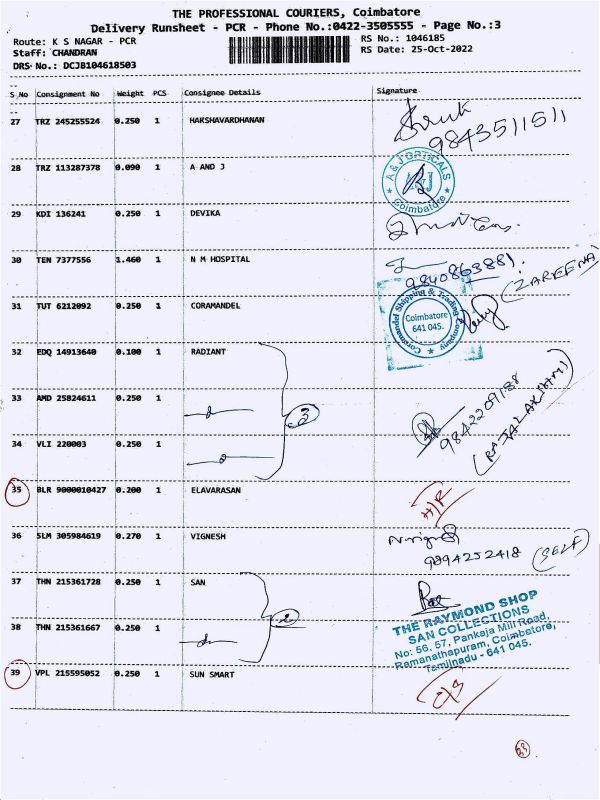 THE PROFESSIONAL COURIERS, Coimbatore
Delivery Runsheet - PCR - Phone No.:0422-3505555 - Page No.:3
Route: K S NAGAR - PCR
RS No.: 1046185
Staff: CHANDRAN
RS Date: 25-Oct-2022
DRS No.: DCJB104618503
S No Consignment No Weight PCS Consignee Details Signature
27 TRZ 245255524 0.250 1 HARSHAVARDHANAN
9843511511
28 TRZ 113287378 0.090 1 A AND J
A & J OPTICALS
A J
Coimbatore
29 KDI 136241 0.250 1 DEVIKA
30 TEN 7377556 1.460 1 N M HOSPITAL
9840863881.
(ZAREENA)
31 TUT 6212092 0.250 1 CORAMANDEL
Coramandel Shipping & Trading Company
Coimbatore
641 045.
32 EDQ 14913640 0.100 1 RADIANT
33 AMD 25824611 0.250 1
3
9842209188
(RAJALAKSHMI)
34 VLI 220003 0.250 1
35 BLR 9000010427 0.200 1 ELAVARASAN
36 SLM 305984619 0.270 1 VIGNESH
9894252418 (SELF)
37 THN 215361728 0.250 1 SAN
2
38 THN 215361667 0.250 1
THE RAYMOND SHOP
SAN COLLECTIONS
No: 56, 57, Pankaja Mill Road,
Ramanathapuram, Coimbatore,
Tamilnadu - 641 045.
39 VPL 215595052 0.250 1 SUN SMART